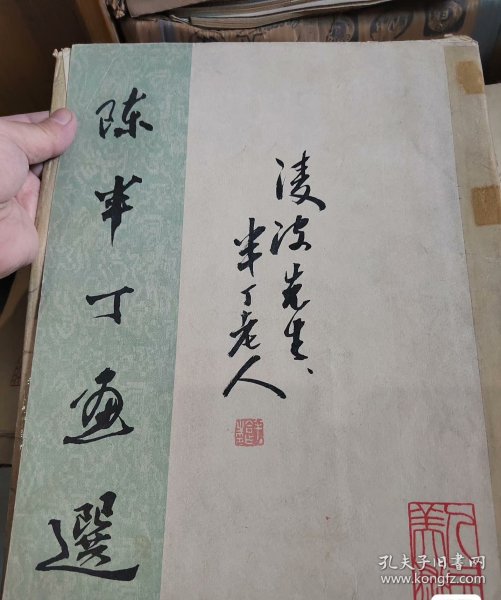 陈半丁画選
凌波先生、
半丁老人
孔夫子旧书网
www.kongfz.com